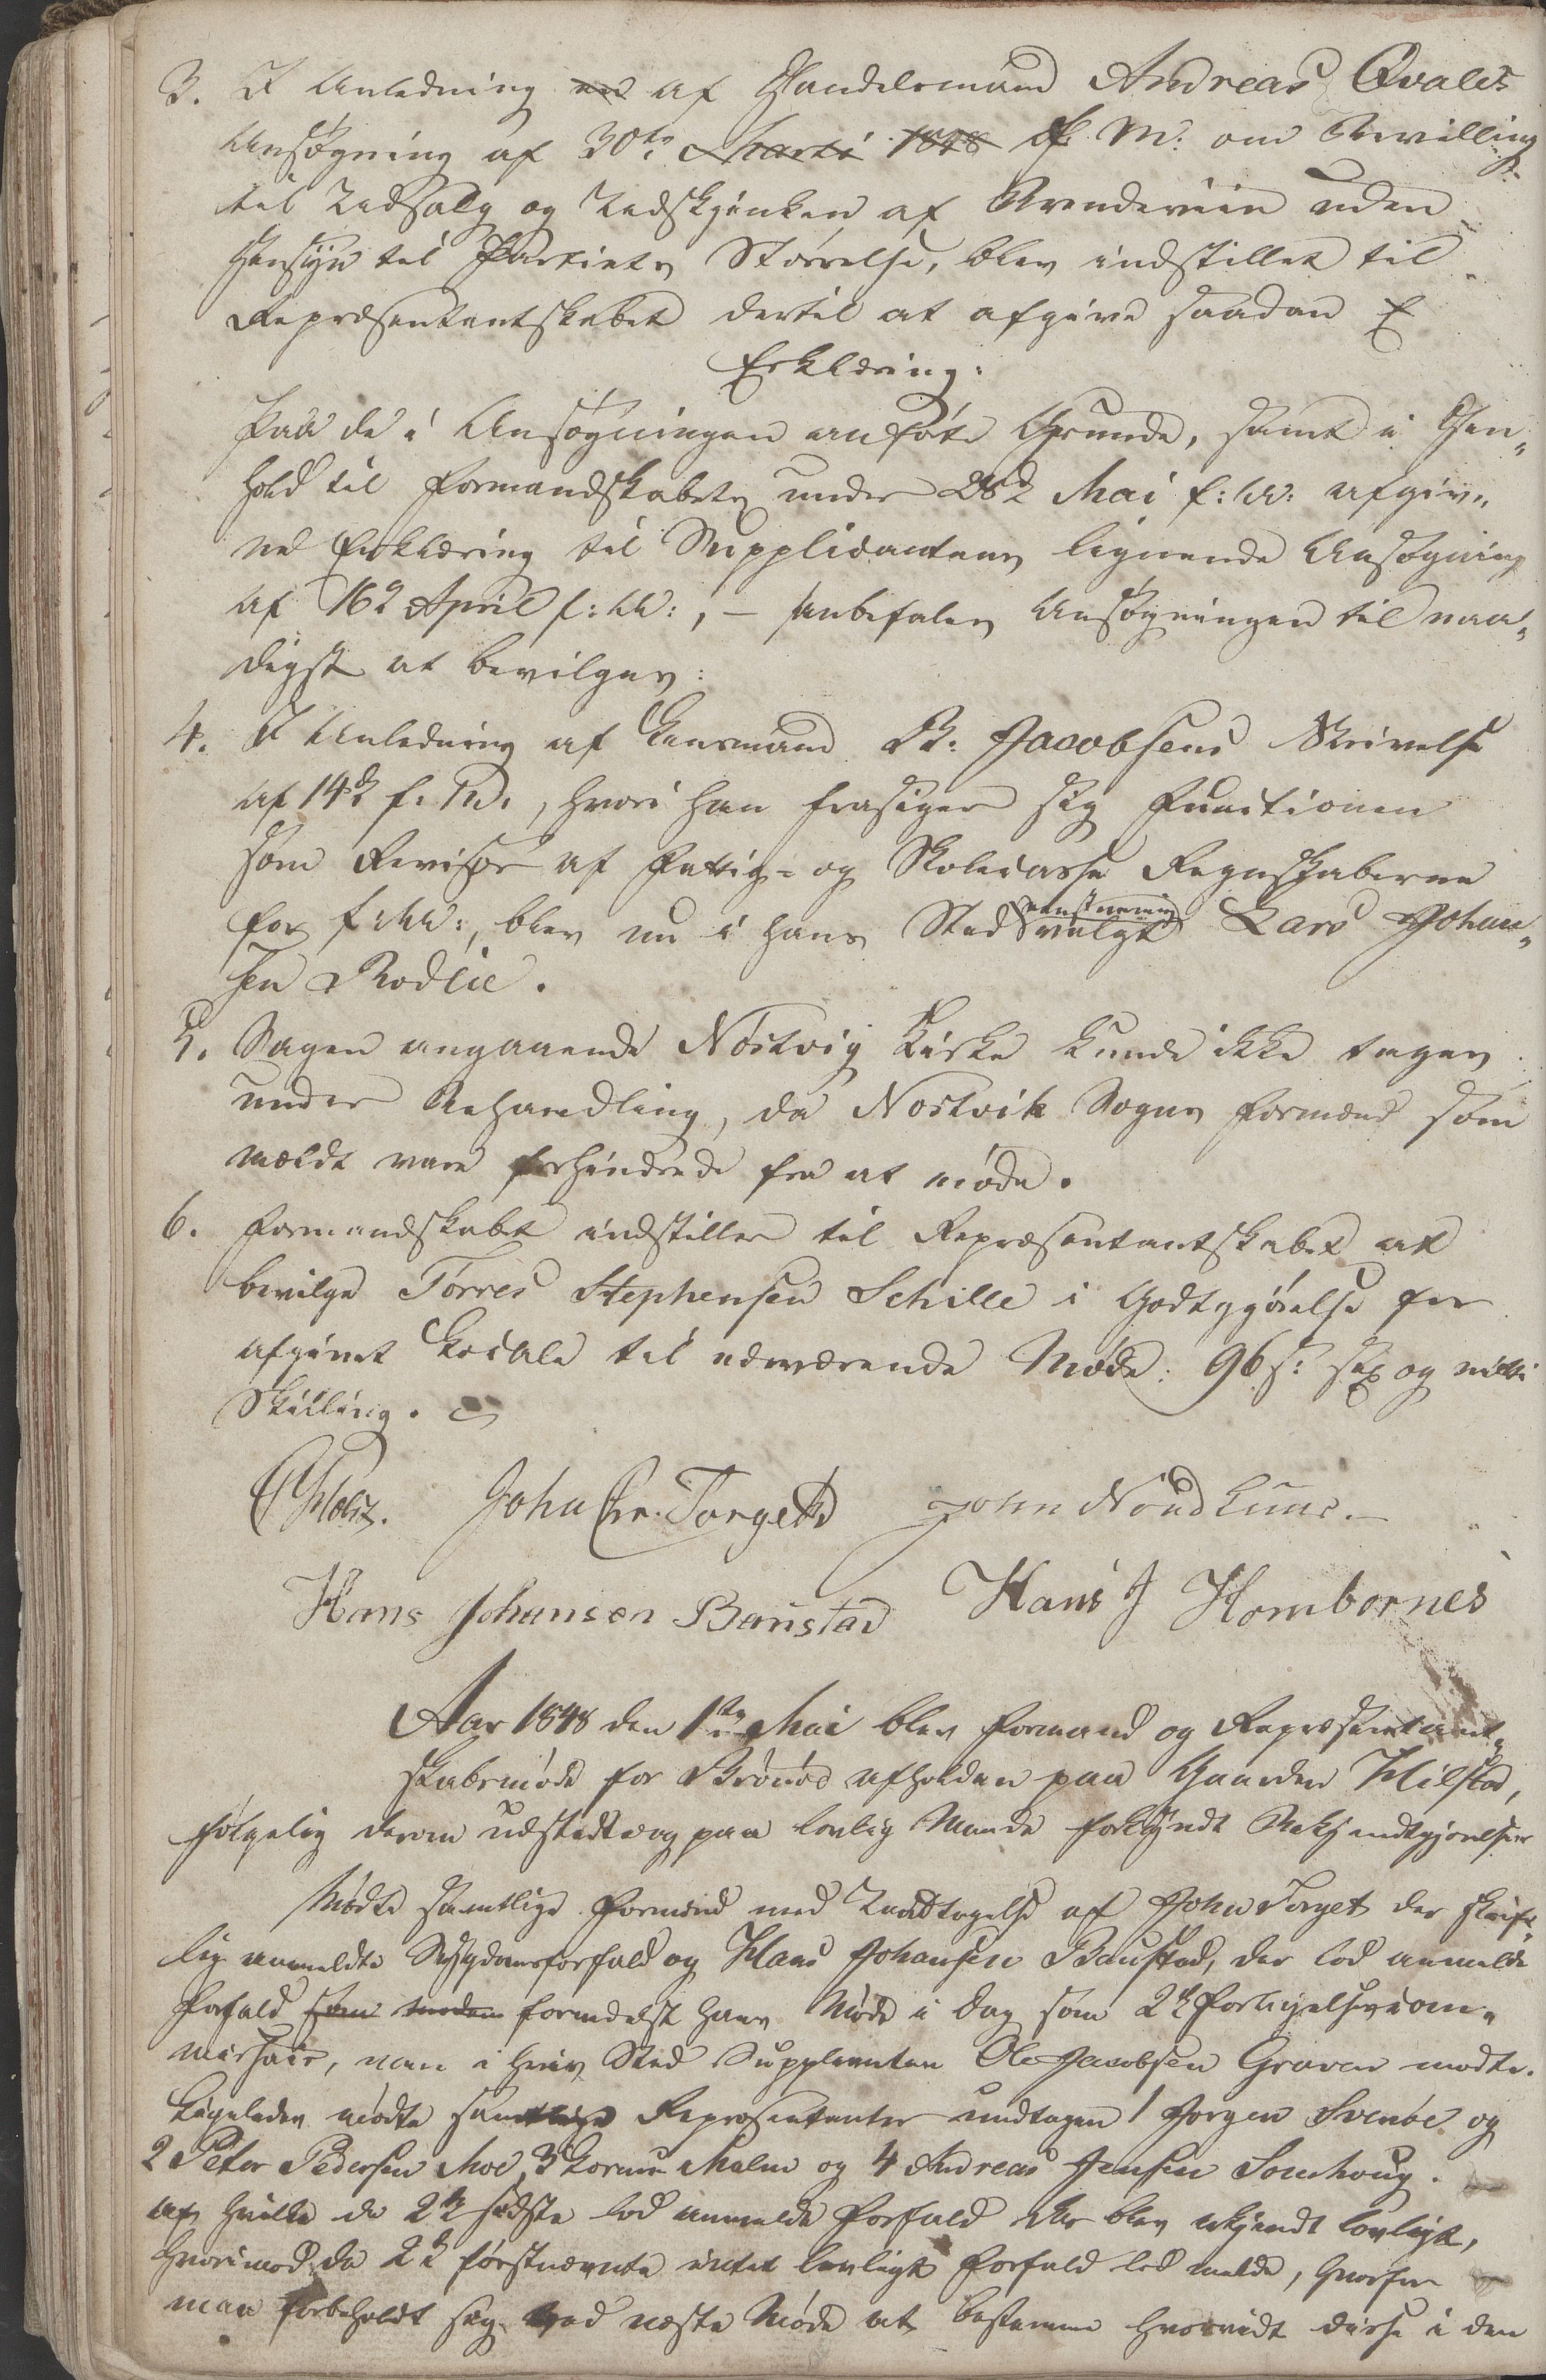 3. I Anledning af Handelsmand Andreas Qvales
Ansøgning af 30te Martii 1848 d. M: om Bevilling
til Udsalg og Udskjænken af Brændeviin uden
Hensyn til Partiets Størrelse, blev indstillet til
Repræsentantskabet dertil at afgive saadan E
Erklæring:
Paa de i Ansøgningen anførte Grunde, samt i Hen„
hold til Formandskabets under 28d Mai f: A: afgiv„
ne Erklæring til Supplicantens lignende Ansøgning
af 16d April f: A:, – anbefales Ansøgningen til naa„
digst at bevilges:
4. I Anledning af Lensmand B: Jacobsens Skrivelse
af 14d f. M., hvori han frasiger sig Functionen
som Revisor af Fattig- og Skolecasse Regnskaberne
for f: A:, blev nu i hans Sted eenstemmig valgt Lars Johan„
sen Rodlie.
5. Sagen angaaende Nöstvig Kirke kunde ikke tages
under Behandling, da Nöstvik Sogns Formænd som
meldt vare forhindrede fra at møde.
6. Formandskabet indstiller til Repræsentantskabet at
bevilge Torres Stephensen Schille i Godtgjørelse for
afgivet Locale til nærværende Møde: 96 s: sex og nitti
Skilling.
John Chr. Torget John Nordhuus.
Hans Johansen Baustad Hans J Hombornes
Aar 1848 den 1ste Mai blev Formand og Repræsentant„
skabsmøde for Brönö afholden paa Gaarden Tilstad,
følgelig derom udstedte og paa lovlig Maade forkyndt Bekjendtgjørelser
Mødte samtlige Formænd med Undtagelse af John Torget der skrift„
lig anmeldte Sygdomsforfald og Hans Johansen Baustad, der lod anmelde
Forfald formedelst hans Møde i Dag som 2d Forligelsescom„
missair, men i hvis Sted Supplianten Ole Jacobsen Graven mødte.
Ligeledes mødte samtlige Repræsentanter undtagen 1 Jørgen Svenöe og
2 Peter Pedersen Moe, 3 Malm og 4 Andreas Jensen Somhoug.
af hvilke de 2d sidste lod anmelde Forfald der blev erkjendt lovligt,
hvorimod de 2d førstnævnte intet lovligt Forfald lod melde, hvorfor
man forbeholdt sig ved næste Møde at bestemme hvorvidt disse i den